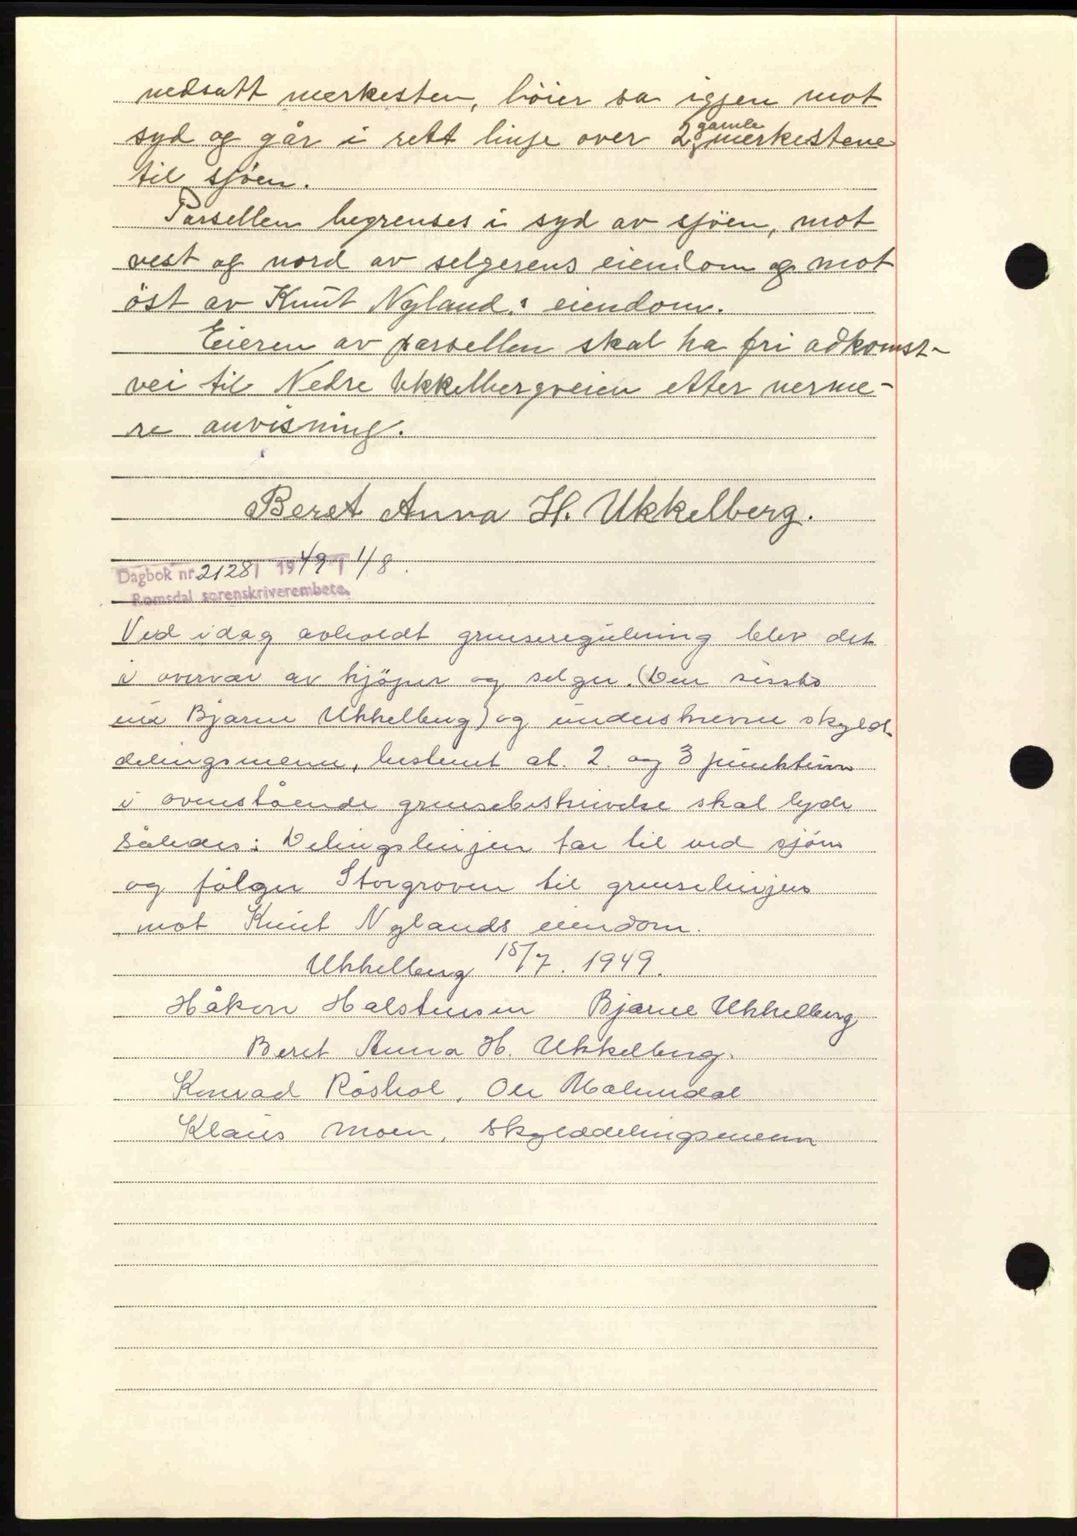 nedsatt merkesten, böier så igjen mot
syd og går i rett linje over 2 gamle merkestene
til sjöen.
Parsellen begrenses i syd av sjöen, mot
vest og nord av selgerens eiendom og mot
öst av Knut Nyland's eiendom.
Eieren av parsellen skal ha fri adkomst-
vei til Nedre Ukkelbergveien etter nerme-
re anvisning.
Beret Anna H. Ukkelberg.
Dagbok nr. 2128 / 1949 1/8.
Romsdal sorenskriverembete.
Ved idag avholdt grenseregulering blev det
i overvær av kjöper og selger. (Den sissts
Bjarne Ukkelberg) og underskrevne skyld-
delingsmenn, bestemt at 2. og 3 punktum
i ovenstående grensebeskrivelse skal lyde
således: Delingslinjen tar til ved sjöen
og fölger Storgroven til grenselinjen
mot Knut Nylands eiendom.
Ukkelberg 15/7. 1949.
Håkon Halstensen Bjarne Ukkelberg
Beret Anna H. Ukkelberg.
Konrad Röshol, Ole Malmedal
Klaus Moen, skylddelingsmenn